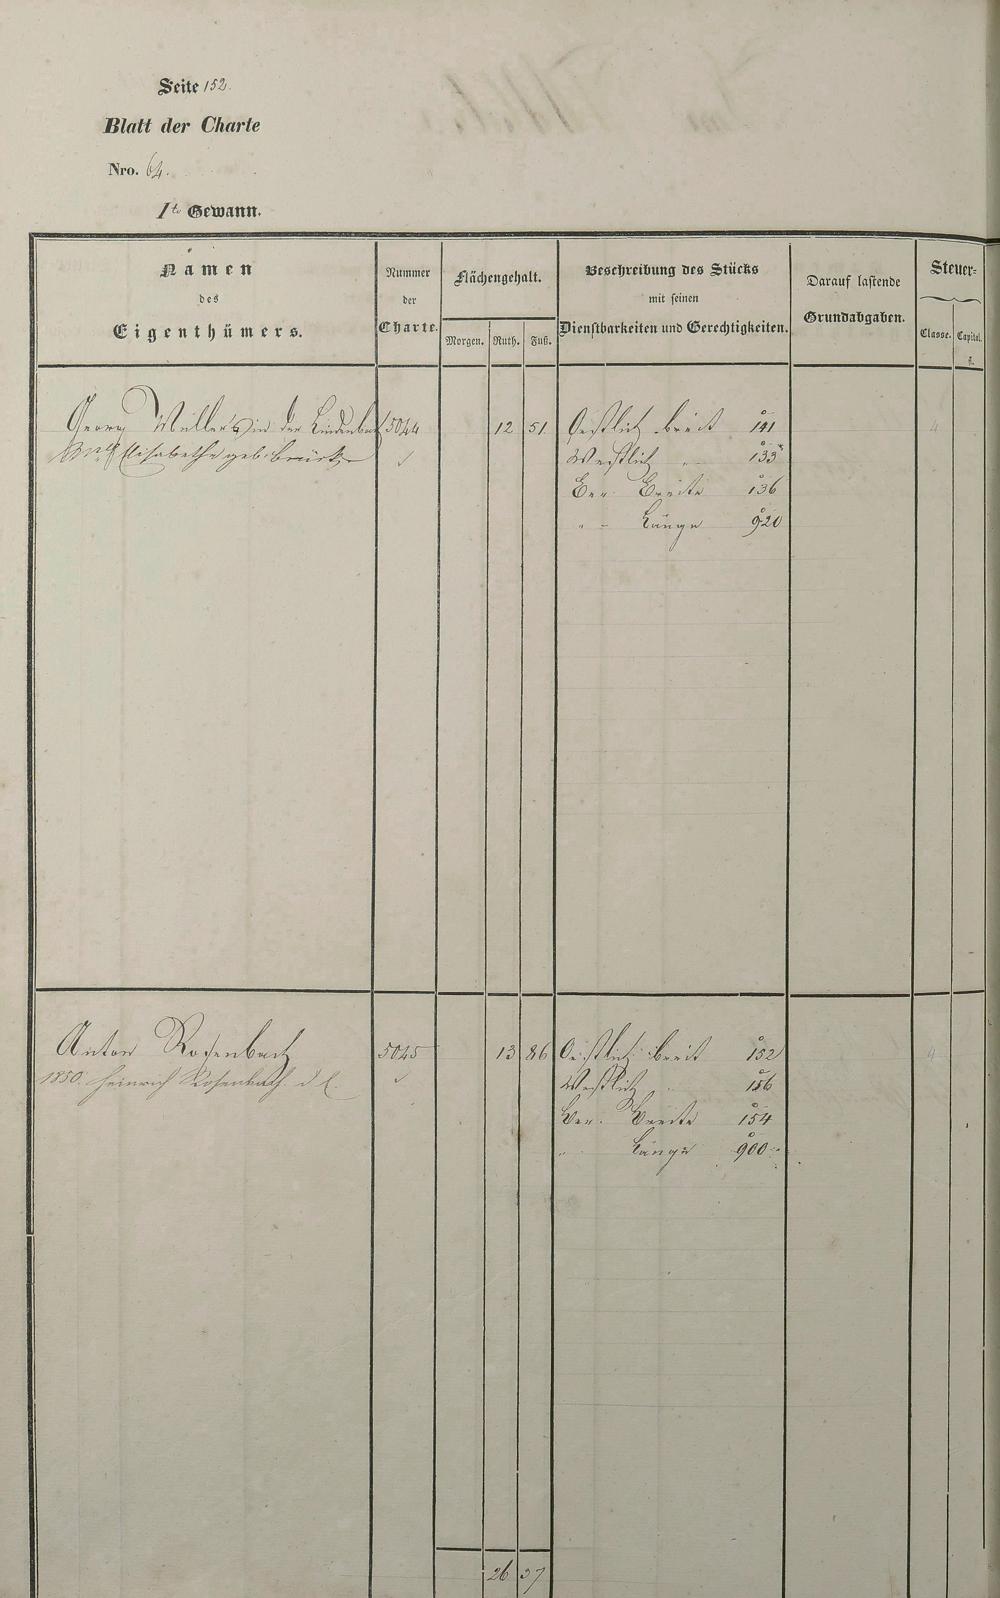 Seite 152.
Blatt der Charte
Nro. 64.
1te Gewann.
Namen des Eigenthümers.
Nummer der Charte.
Flächengehalt.
Morgen. Ruth. Fuß.
Beschreibung des Stücks mit seinen Dienstbarkeiten und Gerechtigkeiten.
Darauf lastende Grundabgaben.
Steuer-
Classe. Capital.
fl.
Georg Müller in der Lindenbach 5044 12 51 Oestlich breit 141 4
Elisabetha geb. Westlich „ 133
Ber. Breite 136
„ – Länge 920
Anton Rosenbach 5045 13 86 Oestlich breit 152 4
1850. Heinrich Rosenbach Westlich 156
Ber. Breite 154
„ Länge 900
26 37